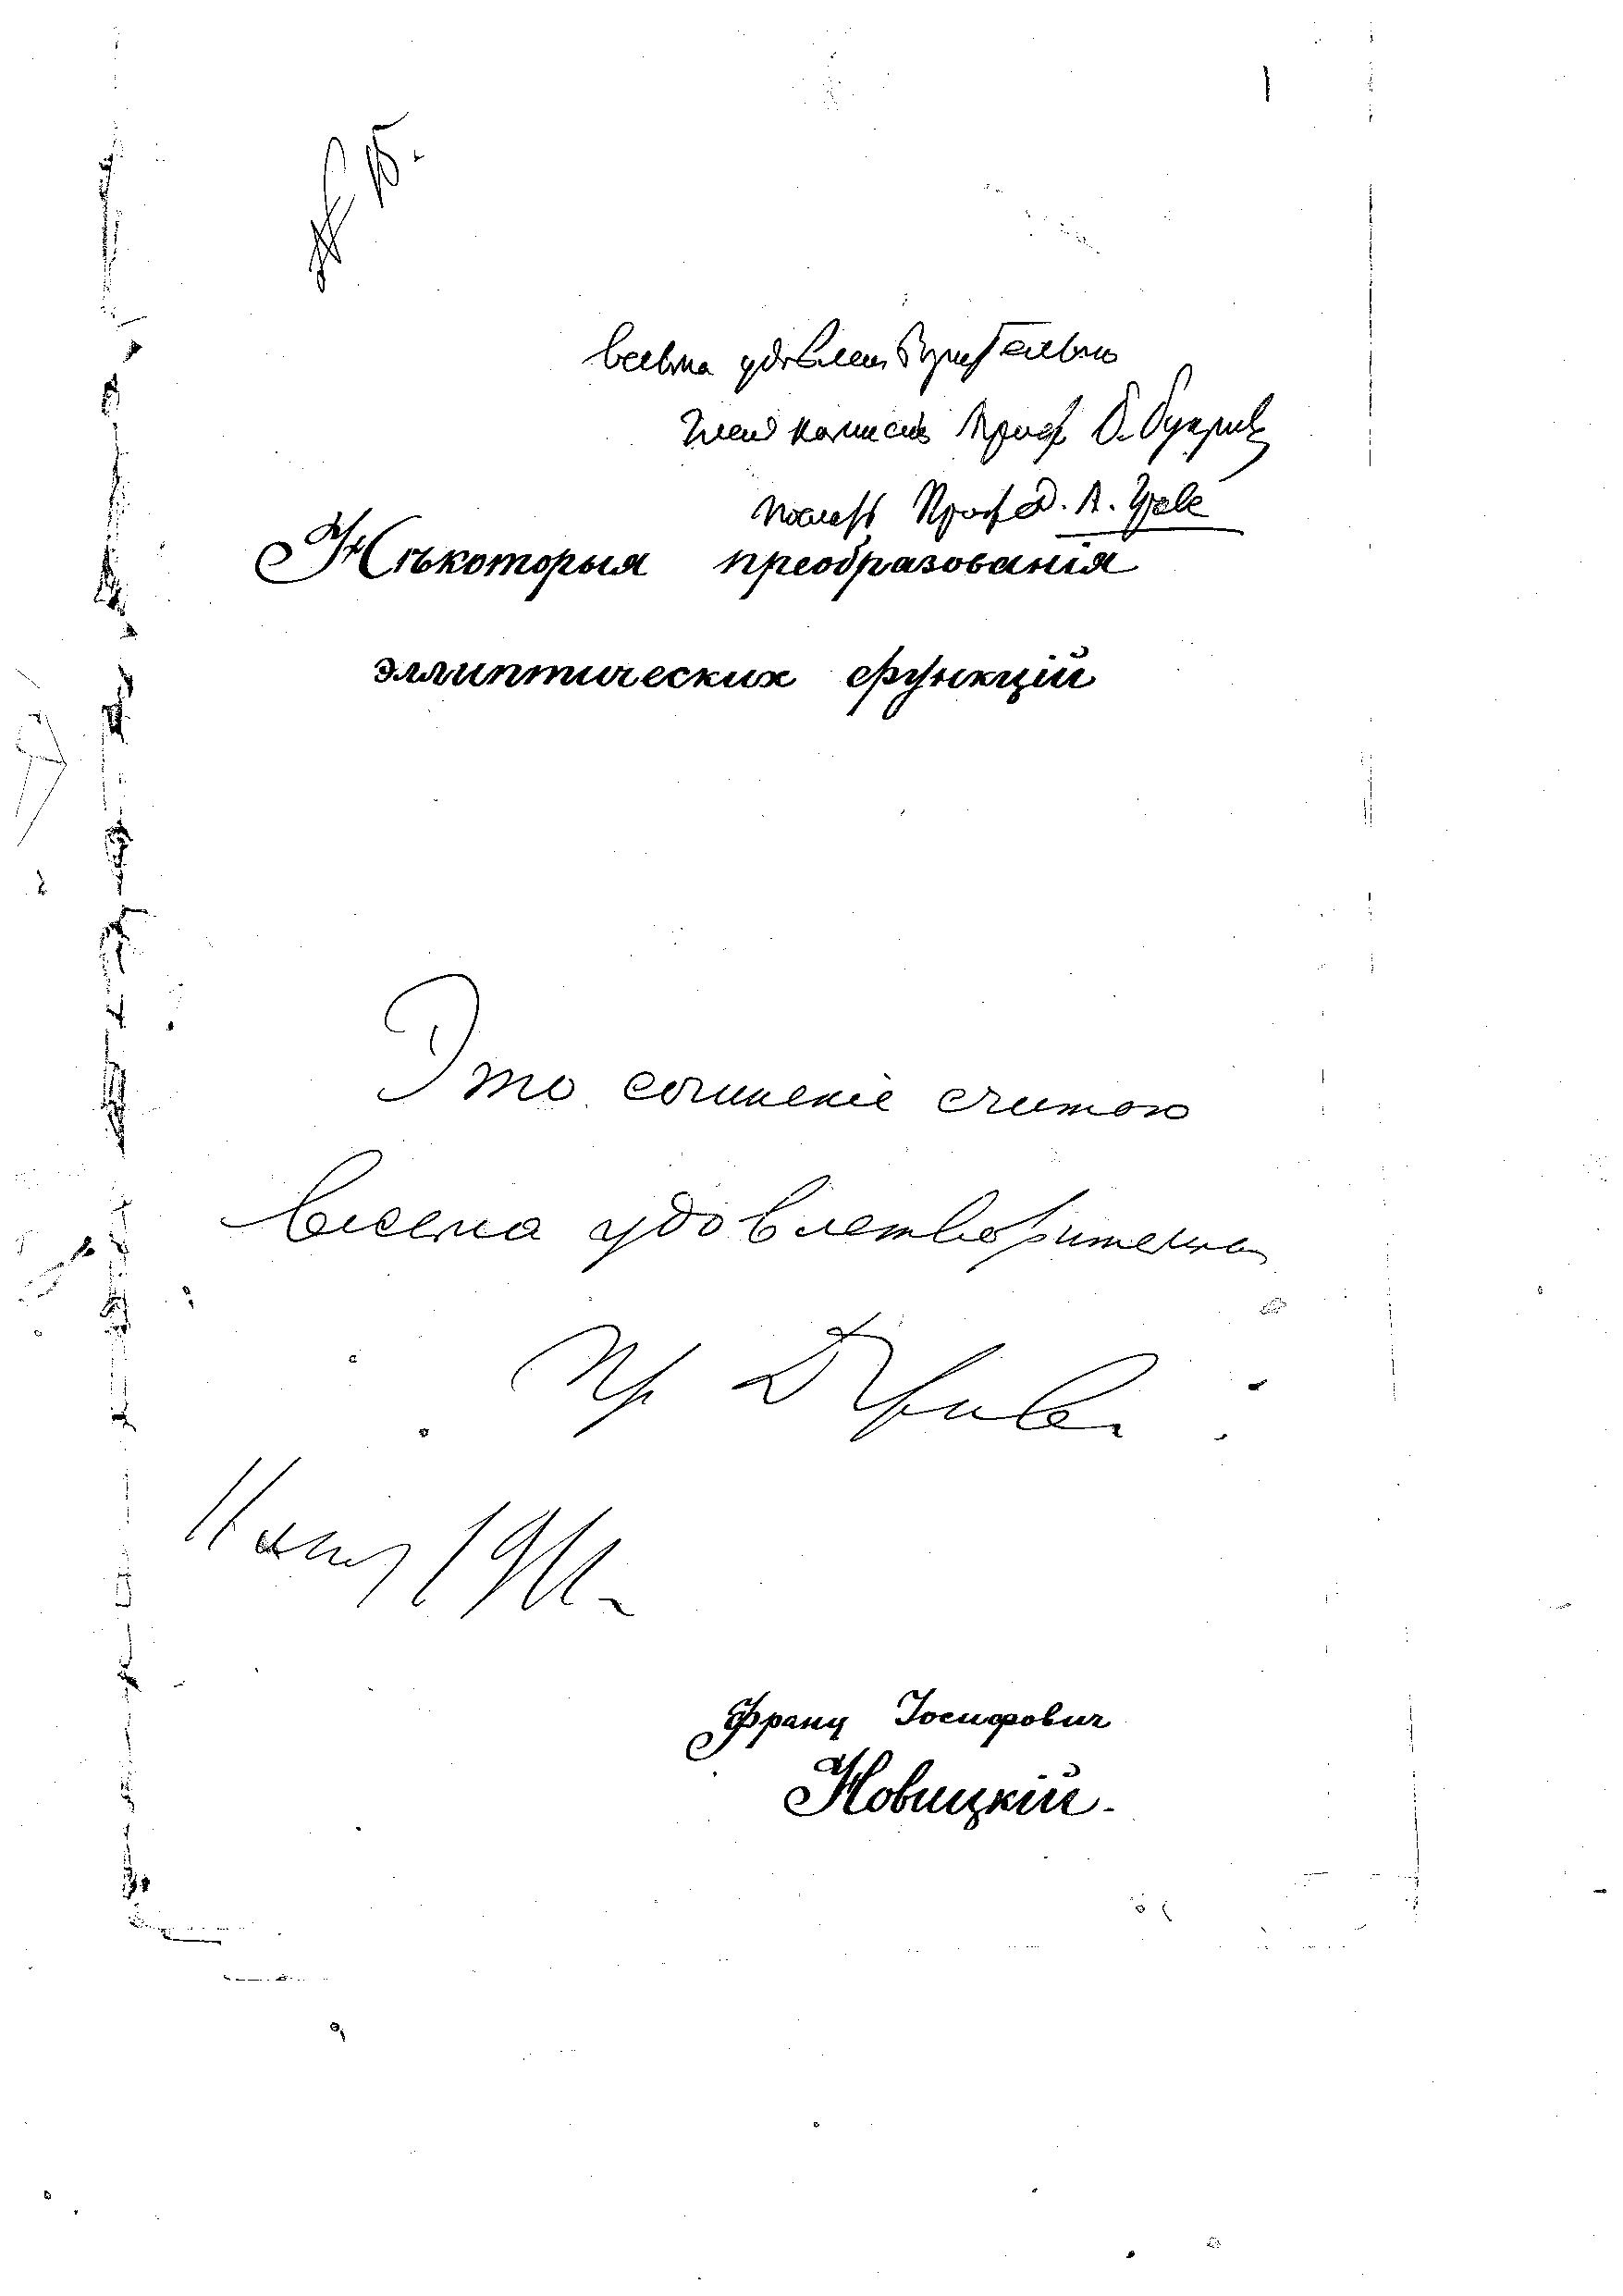 1
весьма удовлетворительно
Член комиссіи Проф Б. Букрѣев
Проф Д. А. Граве
Нѣкоторыя преобразованія
эллиптических функцій
Это сочиненіе считаю
весьма удовлетворительн
Пр Д Граве
1911
Франц Іосифович
Новицкій.